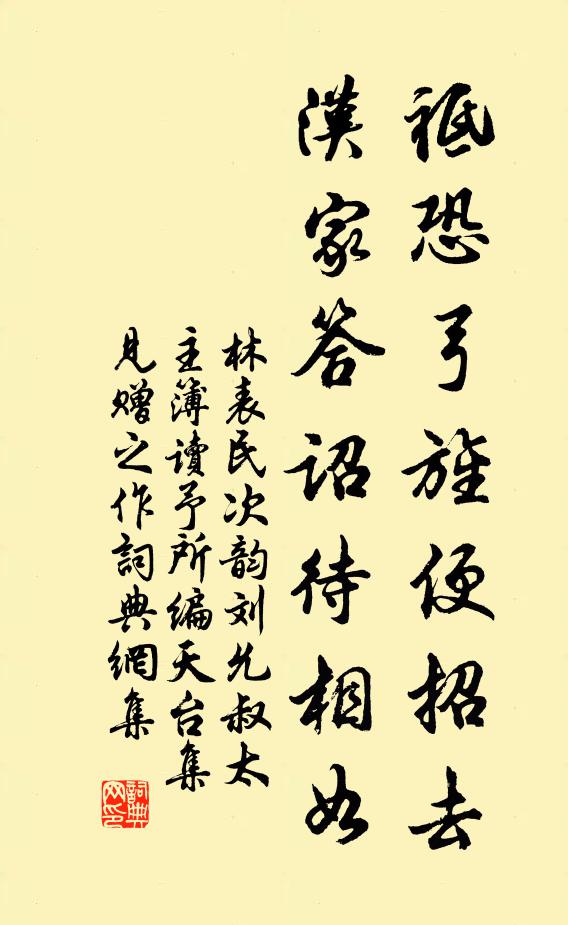 祗恐弓旌便招去
漢家答詔待相如
林表民次韵刘允叔太
主簿讀予所編天台集
見贈之作詞典網集
詞典网印